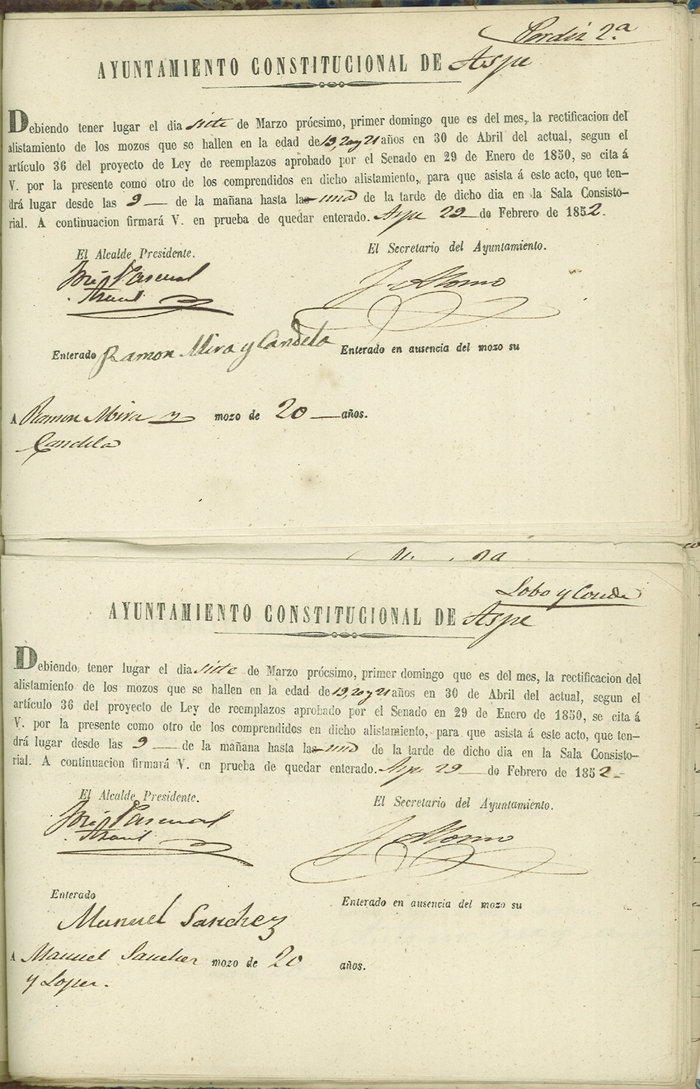 Perdiz 2.a
AYUNTAMIENTO CONSTITUCIONAL DE Aspe
Debiendo tener lugar el dia siete de Marzo prócsimo, primer domingo que es del mes, la rectificacion del
alistamiento de los mozos que se hallen en la edad de 19, 20 y 21 años en 30 de Abril del actual, segun el
artículo 36 del proyecto de Ley de reemplazos aprobado por el Senado en 29 de Enero de 1850, se cita á
V. por la presente como otro de los comprendidos en dicho alistamiento, para que asista á este acto, que ten-
drá lugar desde las 9 de la mañana hasta la una de la tarde de dicho dia en la Sala Consisto-
rial. A continuacion firmará V. en prueba de quedar enterado. Aspe 29 de Febrero de 1852.
El Alcalde Presidente. El Secretario del Ayuntamiento.
Pascual
Enterado Ramon Mira y Candela Enterado en ausencia del mozo su
A Ramon Mira y mozo de 20 años.
Candela
Lobo y Conde
AYUNTAMIENTO CONSTITUCIONAL DE Aspe
Debiendo tener lugar el dia siete de Marzo prócsimo, primer domingo que es del mes, la rectificacion del
alistamiento de los mozos que se hallen en la edad de 19, 20 y 21 años en 30 de Abril del actual, segun el
artículo 36 del proyecto de Ley de reemplazos aprobado por el Senado en 29 de Enero de 1850, se cita á
V. por la presente como otro de los comprendidos en dicho alistamiento, para que asista á este acto, que ten-
drá lugar desde las 9 de la mañana hasta la una de la tarde de dicho dia en la Sala Consisto-
rial. A continuacion firmará V. en prueba de quedar enterado. Aspe 29 de Febrero de 1852.
El Alcalde Presidente. El Secretario del Ayuntamiento.
Pascual
Enterado Enterado en ausencia del mozo su
Manuel Sanchez
A Manuel Sanchez mozo de 20 años.
y Lopez.